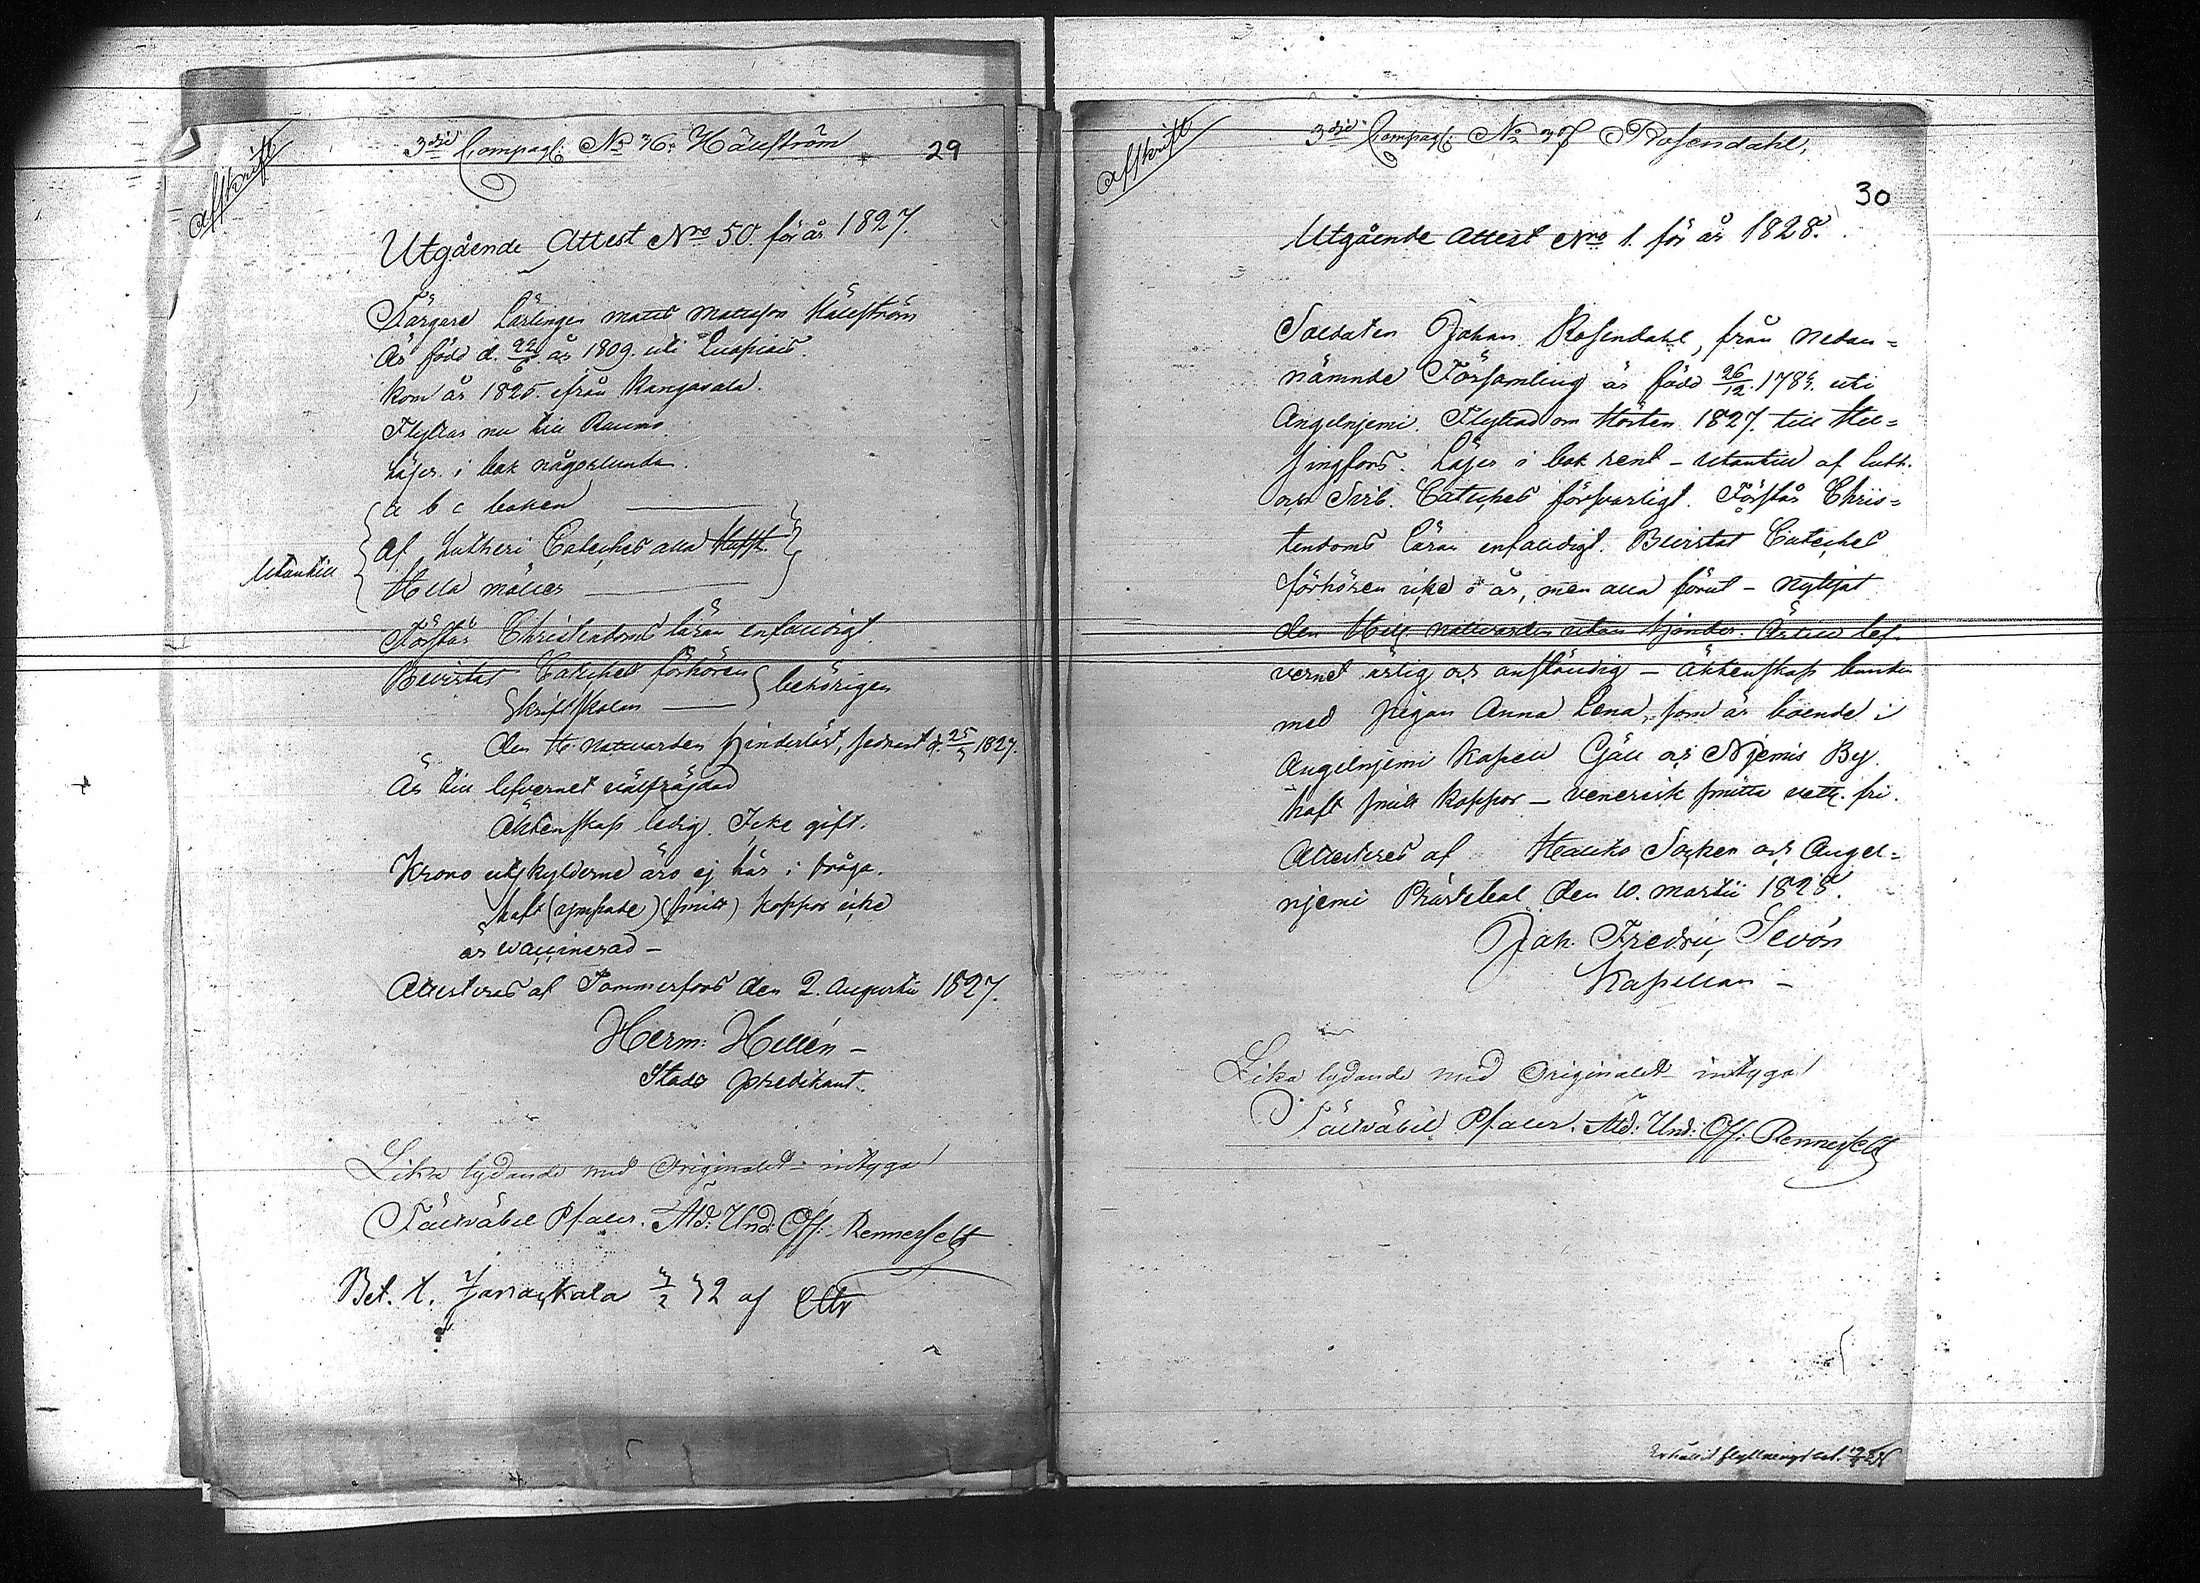 Afskrift
3dje Compagt: No 36. Hällström
29
Utgående Attest Nro 50. för år 1827.
Färgare Lärlingen Matts Mattsson Hällström
är född d. 22/6 år 1809. uti
kom år 1825. ifrån Kangasala.
Flyttas nu till Raumo.
Läser i bok någorlunda.
a b c boken
af Lutheri Cateches alla Hufst.
Utantill
Förstår Christendoms läran enfaldigt.
Bevistat Catechet förhören
Skriftskolan
behörigen
den H. nattvarden hinderlöst, sednast d. 25/3 1827.
Är till lefvernet välfrägdad
Äktenskaps ledig. Icke gift.
Krono utskylderne äro ej här i fråga.
haft (ympade) (små) koppor icke
är waccinerad —
Attesteras af Tammerfors den 2. Augustii 1827.
Herm: Hellén —
Stads predikant.
Lika lydande med Originalet intygar
Fältväbel Pfaler. Äld: Und: Off: Rennerfelt
Bet. t. Janakkala
af
Afskrift
3dje Compagt: No 37 Rosendahl,
30
Utgående Attest Nro 1. för år 1828.
Soldaten Johan Rosendahl, från nedan=
nämnde Församling är född 26/12. uti
Angelnjemi. Flyttad om Hösten 1827. till Hel=
singfors. Läser i bok rent — utantill af Luth.
och Svib. Cateches försvarligt. Förstår Chris=
tendoms läran enfaldigt. Bevistat Catechet
förhören icke i år, men alla förut — nyttjat
den Hel. nattvarden utan hinder. Är till lef-
vernet ärlig och anständig — Äktenskaps bunden
med pigan Anna Lena, som är boende i
Angelnjemi Kapell Gäll och Njemis By.
haft små koppor — venerisk smitta vett. fri.
Attesteras af Haliko Socken och Angel=
njemi Prästebol den 10. Martii 1828.
Joh. Fredric Sevón
Kapellan —
Lika lydande med Originalet intygar
Fältväbel Pfaler. Äld: Und: Off: Rennerfelt
Erhållit flyttningsbet.